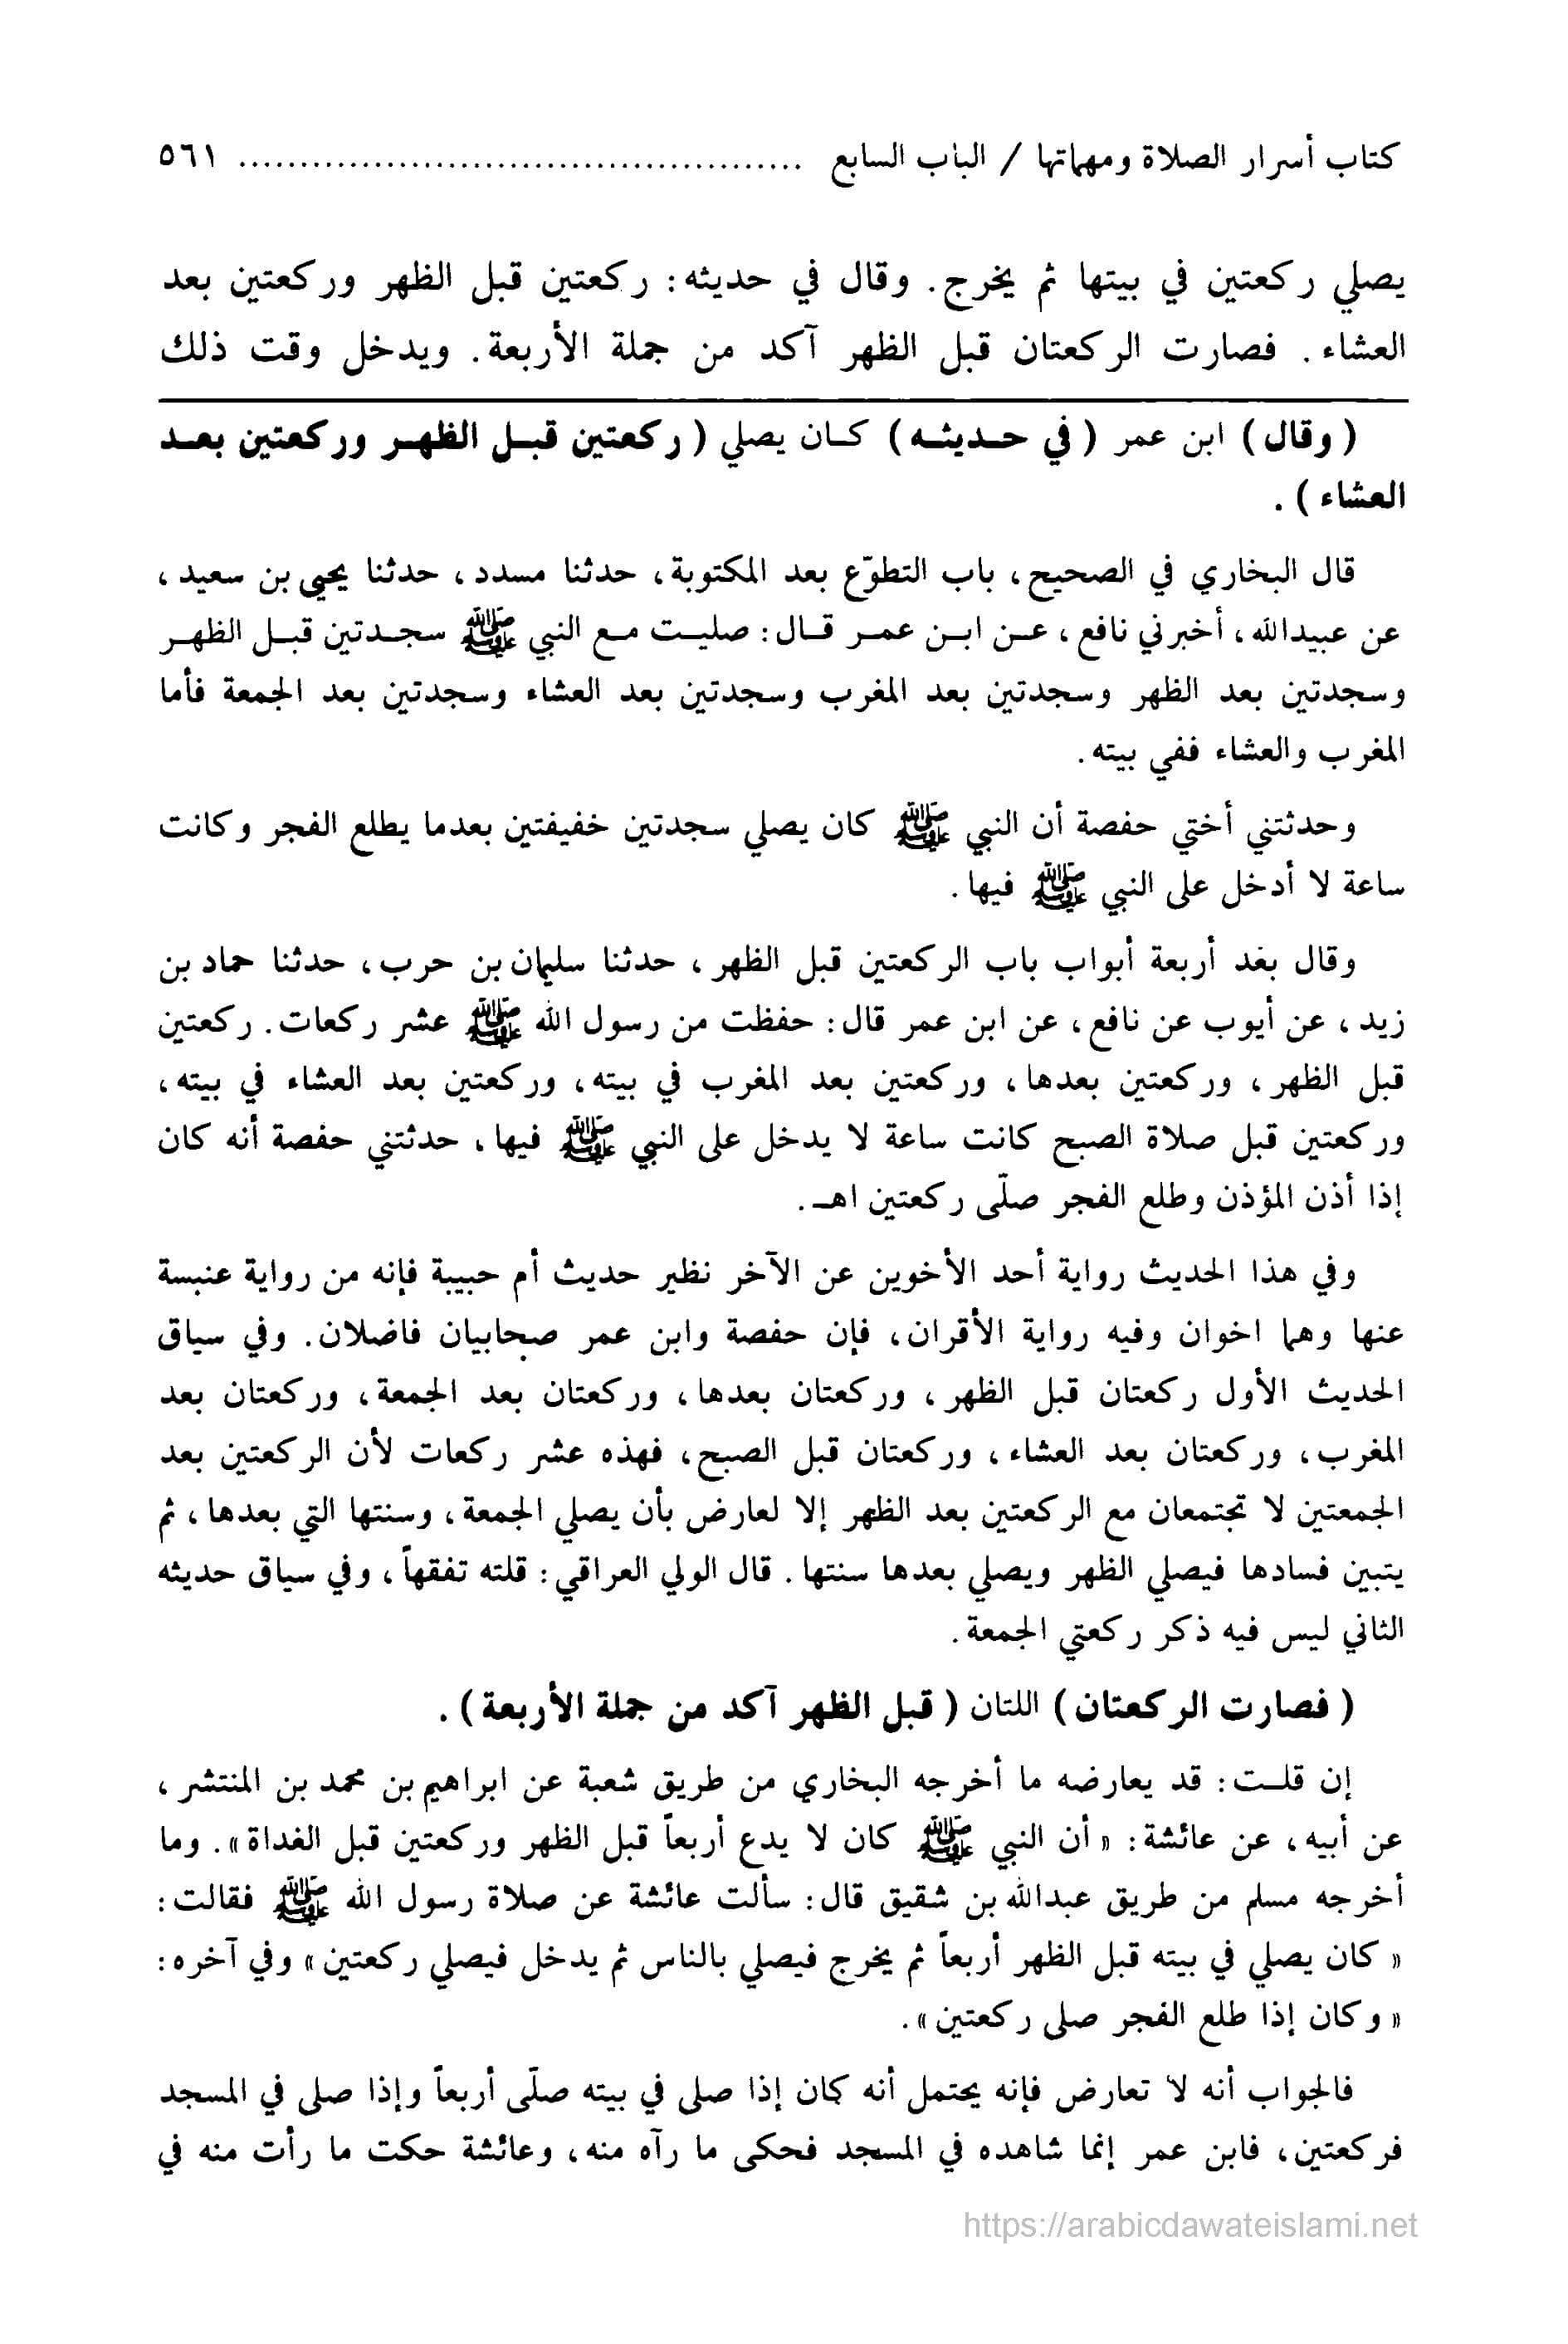 كتاب أسرار الصلاة ومهماتها / الباب السابع ............................................... ٥٦١
يصلي ركعتين في بيتها ثم يخرج. وقال في حديثه: ركعتين قبل الظهر وركعتين بعد
العشاء. فصارت الركعتان قبل الظهر آكد من جملة الأربعة. ويدخل وقت ذلك
( وقال ) ابن عمر ( في حـديثـه ) كـان يصلي ( ركعتين قبـل الظهـر وركعتين بعـد
العشاء ) .
قال البخاري في الصحيح، باب التطوّع بعد المكتوبة، حدثنا مسدد، حدثنا يحيى بن سعيد،
عن عبيدالله، أخبرني نافع، عـن ابـن عمـر قـال: صليـت مـع النبي ﷺ سجـدتين قبـل الظهـر
وسجدتين بعد الظهر وسجدتين بعد المغرب وسجدتين بعد العشاء وسجدتين بعد الجمعة فأما
المغرب والعشاء ففي بيته.
وحدثتني أختي حفصة أن النبي ﷺ كان يصلي سجدتين خفيفتين بعدما يطلع الفجر وكانت
ساعة لا أدخل على النبي ﷺ فيها.
وقال بعد أربعة أبواب باب الركعتين قبل الظهر، حدثنا سليمان بن حرب، حدثنا حماد بن
زيد، عن أيوب عن نافع، عن ابن عمر قال: حفظت من رسول الله ﷺ عشر ركعات. ركعتين
قبل الظهر، وركعتين بعدها، وركعتين بعد المغرب في بيته، وركعتين بعد العشاء في بيته،
وركعتين قبل صلاة الصبح كانت ساعة لا يدخل على النبي ﷺ فيها، حدثتني حفصة أنه كان
إذا أذن المؤذن وطلع الفجر صلّى ركعتين اهـ.
وفي هذا الحديث رواية أحد الأخوين عن الآخر نظير حديث أم حبيبة فإنه من رواية عنبسة
عنها وهما اخوان وفيه رواية الأقران، فإن حفصة وابن عمر صحابيان فاضلان. وفي سياق
الحديث الأول ركعتان قبل الظهر، وركعتان بعدها، وركعتان بعد الجمعة، وركعتان بعد
المغرب، وركعتان بعد العشاء، وركعتان قبل الصبح، فهذه عشر ركعات لأن الركعتين بعد
الجمعتين لا تجتمعان مع الركعتين بعد الظهر إلا لعارض بأن يصلي الجمعة، وسنتها التي بعدها، ثم
يتبين فسادها فيصلي الظهر ويصلي بعدها سنتها. قال الولي العراقي: قلته تفقهاً، وفي سياق حديثه
الثاني ليس فيه ذكر ركعتي الجمعة.
( فصارت الركعتان ) اللتان ( قبل الظهر آكد من جملة الأربعة ) .
إن قلـت: قد يعارضه ما أخرجه البخاري من طريق شعبة عن ابراهيم بن محمد بن المنتشر،
عن أبيه، عن عائشة: « أن النبي ﷺ كان لا يدع أربعاً قبل الظهر وركعتين قبل الغداة». وما
أخرجه مسلم من طريق عبدالله بن شقيق قال: سألت عائشة عن صلاة رسول الله ﷺ فقالت:
« كان يصلي في بيته قبل الظهر أربعاً ثم يخرج فيصلي بالناس ثم يدخل فيصلي ركعتين» وفي آخره:
« وكان إذا طلع الفجر صلى ركعتين».
فالجواب أنه لا تعارض فإنه يحتمل أنه كان إذا صلى في بيته صلّى أربعاً وإذا صلى في المسجد
فركعتين، فابن عمر إنما شاهده في المسجد فحكى ما رآه منه، وعائشة حكت ما رأت منه في
https://arabicdawateislami.net